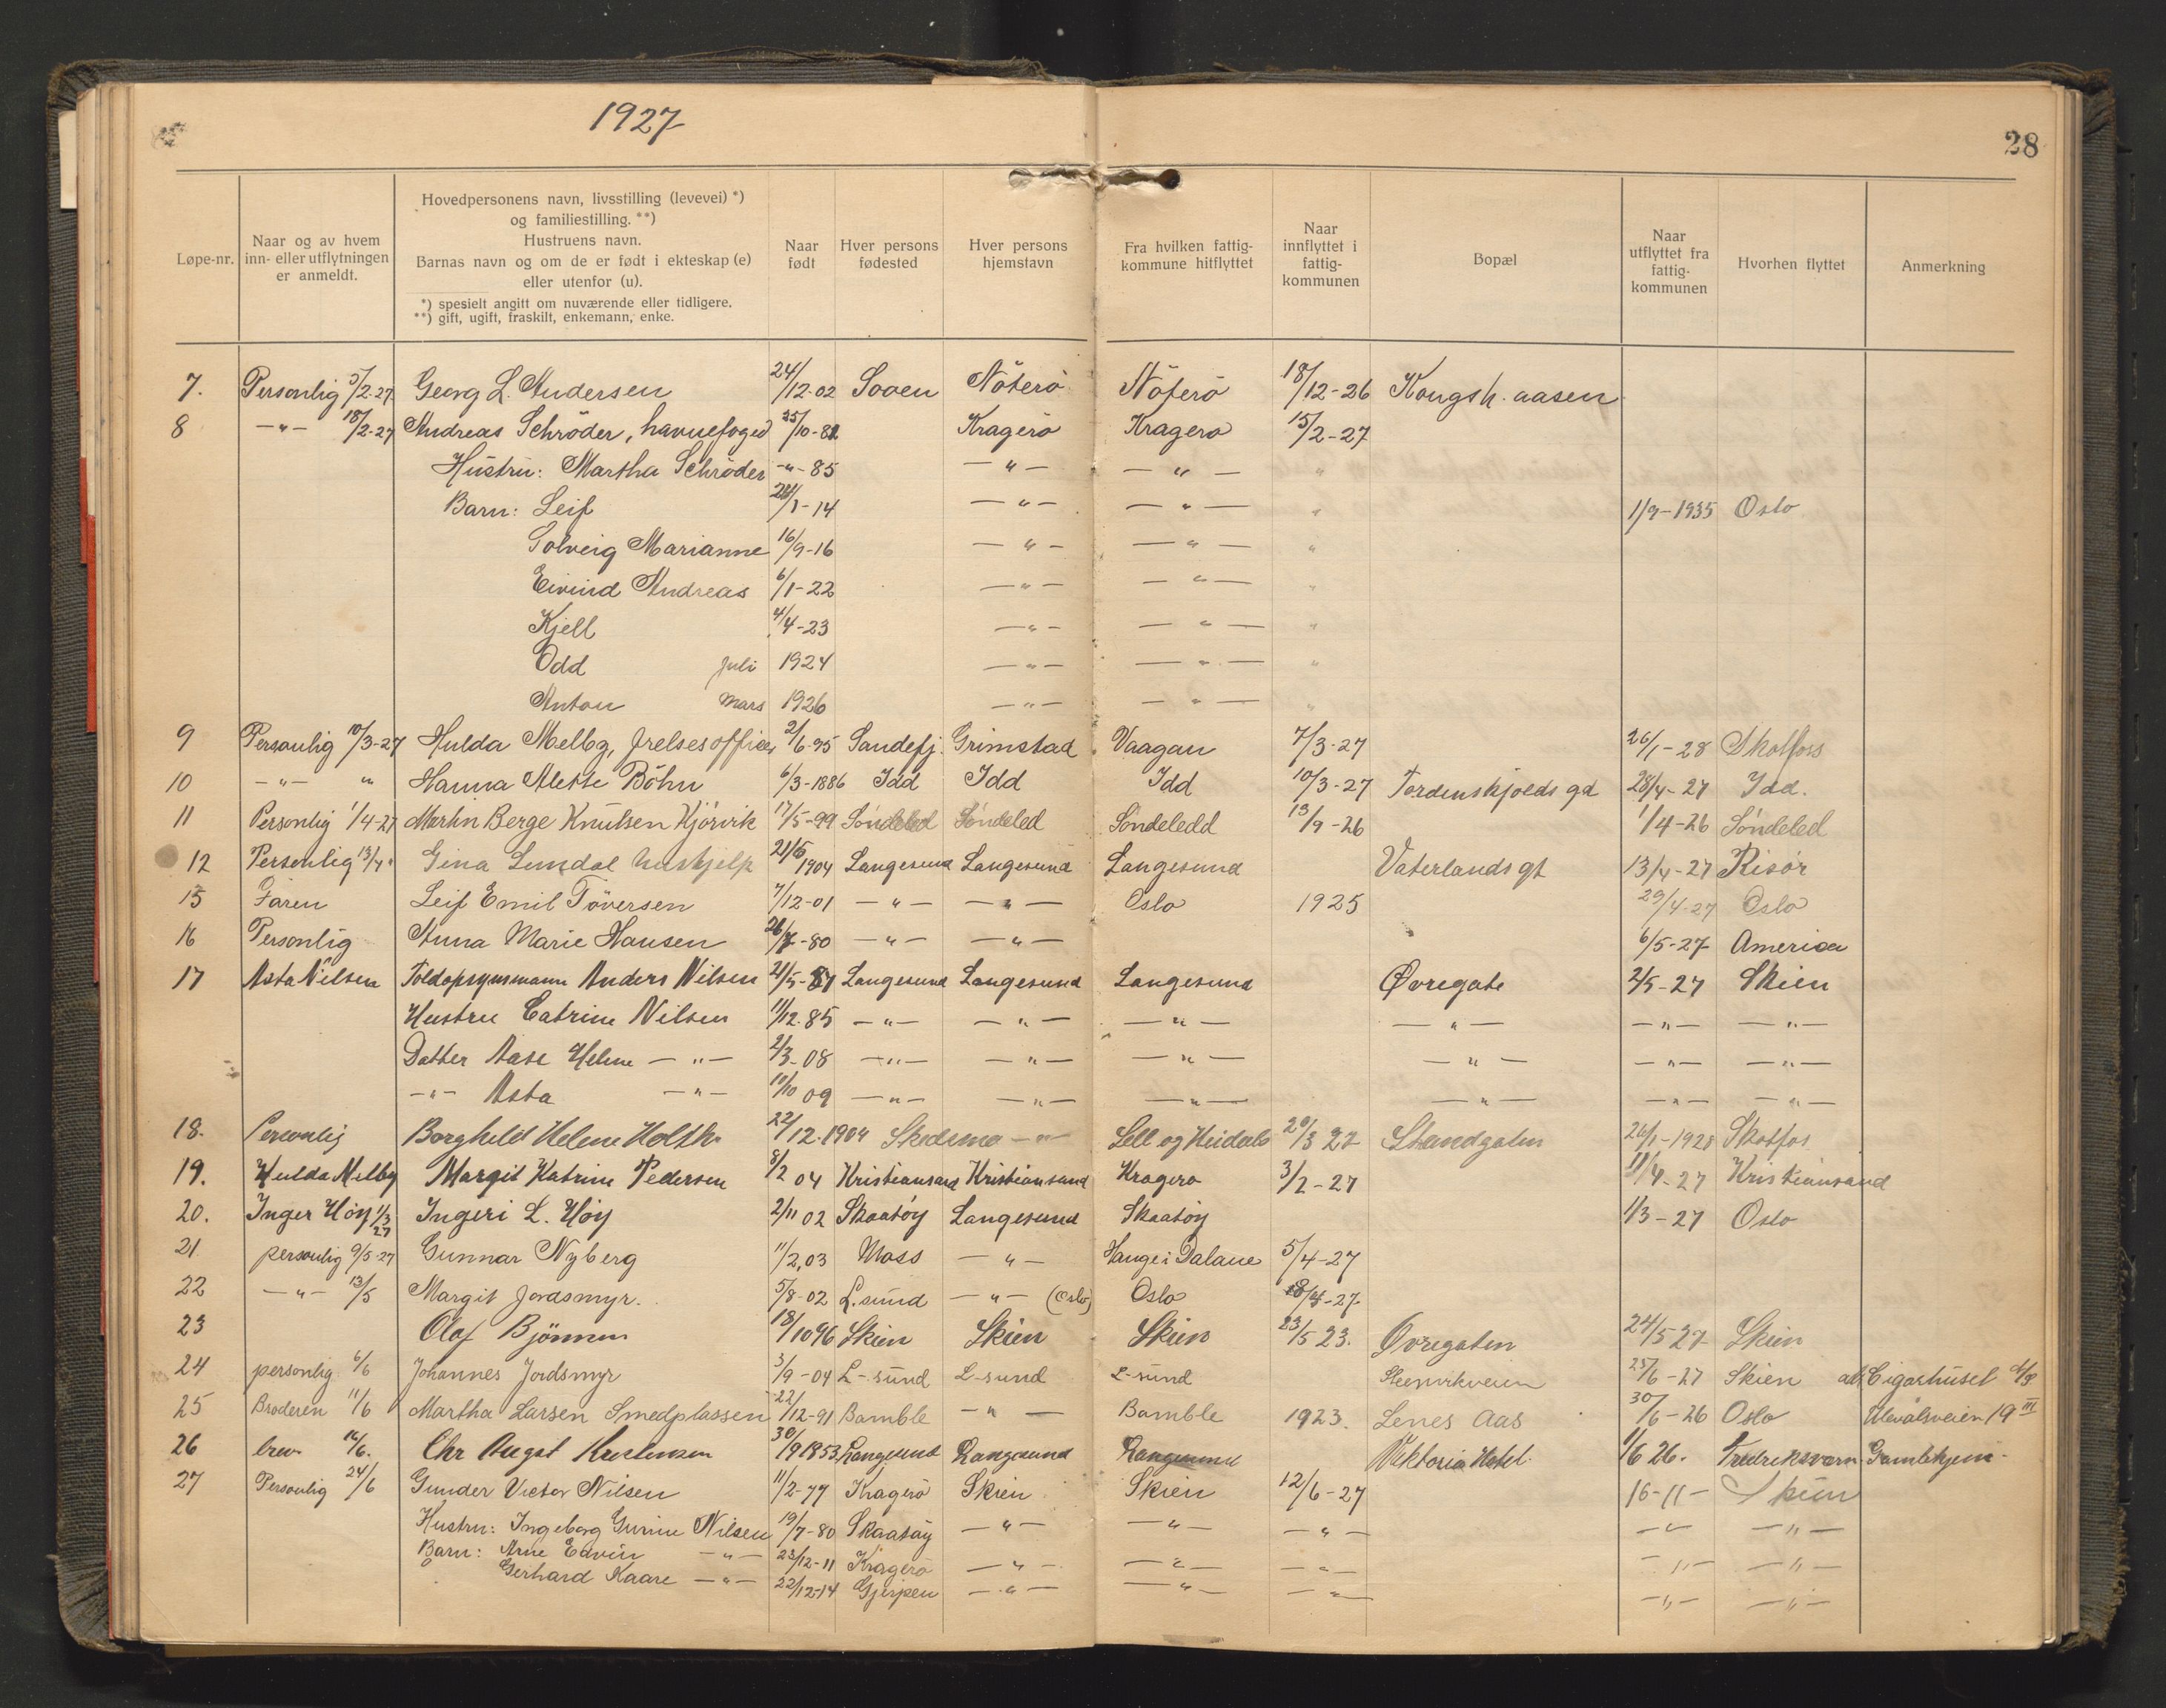 1927
28
Løpe-nr. | Naar og av hvem inn- eller utflytningen er anmeldt. | Hovedpersonens navn, livsstilling (levevei) *) og familiestilling. **) Hustruens navn. Barnas navn og om de er født i ekteskap (e) eller utenfor (u). *) spesielt angitt om nuværende eller tidligere. **) gift, ugift, fraskilt, enkemann, enke. | Naar født | Hver persons fødested | Hver persons hjemstavn | Fra hvilken fattigkommune hitflyttet | Naar innflyttet i fattigkommunen | Bopæl | Naar utflyttet fra fattigkommunen | Hvorhen flyttet | Anmerkning
7. Personlig 5/2-27 Georg L. Andersen 24/12-02 Soven Nöterö Nöterö 18/12-26 Kongsh. aasen
8 -"- 18/2-27 Andreas Schröder, havnefoged 25/10-82 Kragerö Kragerö 15/2-27
Hustru: Martha Schröder -"- 85 -"- -"- "
Barn: Leif 26/1-14 -"- -"- " 1/9-1935 Oslo
Solveig Marianne 16/9-16 -"- -"- "
Eivind Andreas 6/1-22 -"- -"- "
Kjell 4/4-23 -"- -"- "
Odd juli 1924 -"- -"- "
Anton Mars 1926 -"- -"- "
9 Personlig 10/3-27 Hulda Melby, frelsesofficer 2/6-95 Sandefj. Grimstad Vaagan 7/3-27 26/1-28 Skotfoss
10 -"- " Hanna Alette Böhn 6/3-1886 Idd Idd Idd 10/3-27 Tordenskjolds gd 28/4-27 Idd.
11 Personlig 1/4-27 Martin Berge Knutsen Kjörvik 17/5-99 Söndeled Söndeled Söndeledd 13/9-26 1/4-26 Söndeled
12 Personlig 13/4 Gina Lundal huskjelp 21/6 1904 Langesund Langesund Langesund Vaterlands gt 13/4-27 Risör
15 Faren Leif Emil Töversen 7/12-01 -"- -"- Oslo 1925 29/4-27 Oslo
16 Personlig Anna Marie Hansen 26/7-80 -"- -"- 6/5-27 America
17 Asta Nilsen Toldopsynsmann Anders Nilsen 21/5-87 Langesund Langesund Langesund Øvregate 2/5-27 Skien
Hustru Catrine Nilsen 11/12-85 -"- -"- -"- -"- -"- -"-
Datter Aase Helene -"- 2/3-08 -"- -"- -"- -"- -"- -"-
-"- Asta -"- 10/10 09 -"- -"- -"- -"- -"- -"-
18. Personlig Borghild Helene Holth 22/12-1904 Skedsmo -"- 20/3 27 Strandgaten 26/1-1928 Skotfos
19. Hulda Melby Margit Katrine Pedersen 8/2 04 Kristiansand Kristiansand Kragerø 3/2-27 11/4-27 Kristiansand
20. Inger Höy 1/3 27 Ingeri L. Höy 2/11 02 Skaatöy Langesund Skaatöy 1/3-27 Oslo
21 personlig 9/5-27 Gunnar Nyberg 11/2,03 Moss -"- Hauge i Dalane 5/4-27
22 -"- 13/5 Margit Jordsmyr. 5/8-02 L.sund -"- (Oslo) Oslo 18/4-27
23 Olaf Bjönnen 18/10 96 Skien Skien Skien 23/5 23. Øvregaten 24/5 27 Skien
24 personlig 6/6 Johannes Jordsmyr 3/9-04 L-sund L-sund L-sund Steenvikveien 25/6-27 Skien Cigarhuset
25 Broderen 11/6 Martha Larsen Smedplassen 22/12-91 Bamble -"- Bamble 1923. Lenes Aas 30/6-26 Oslo Ulevålsveien 19 III
26 brev 16/6. Chr August Kristensen 30/9 1853 Langesund Langesund Langesund Viktoria Hotel 1/6 26. Fredriksværn Gamlehjem
27 Personlig 24/6 Gunder Victor Nilsen 11/2-77 Kragerö Skien Skien 12/6-27 16-11- Skien
Hustru: Ingeborg Gurine Nilsen 19/7-80 Skaatöy -"- -"- -"- -"- -"-
Barn: Arne Edvin -"- 23/12-11 Kragerö -"- -"- -"- -"- -"-
Gerhard Kaare -"- 22/12-14 Gjerpen -"- -"- -"- -"- -"-